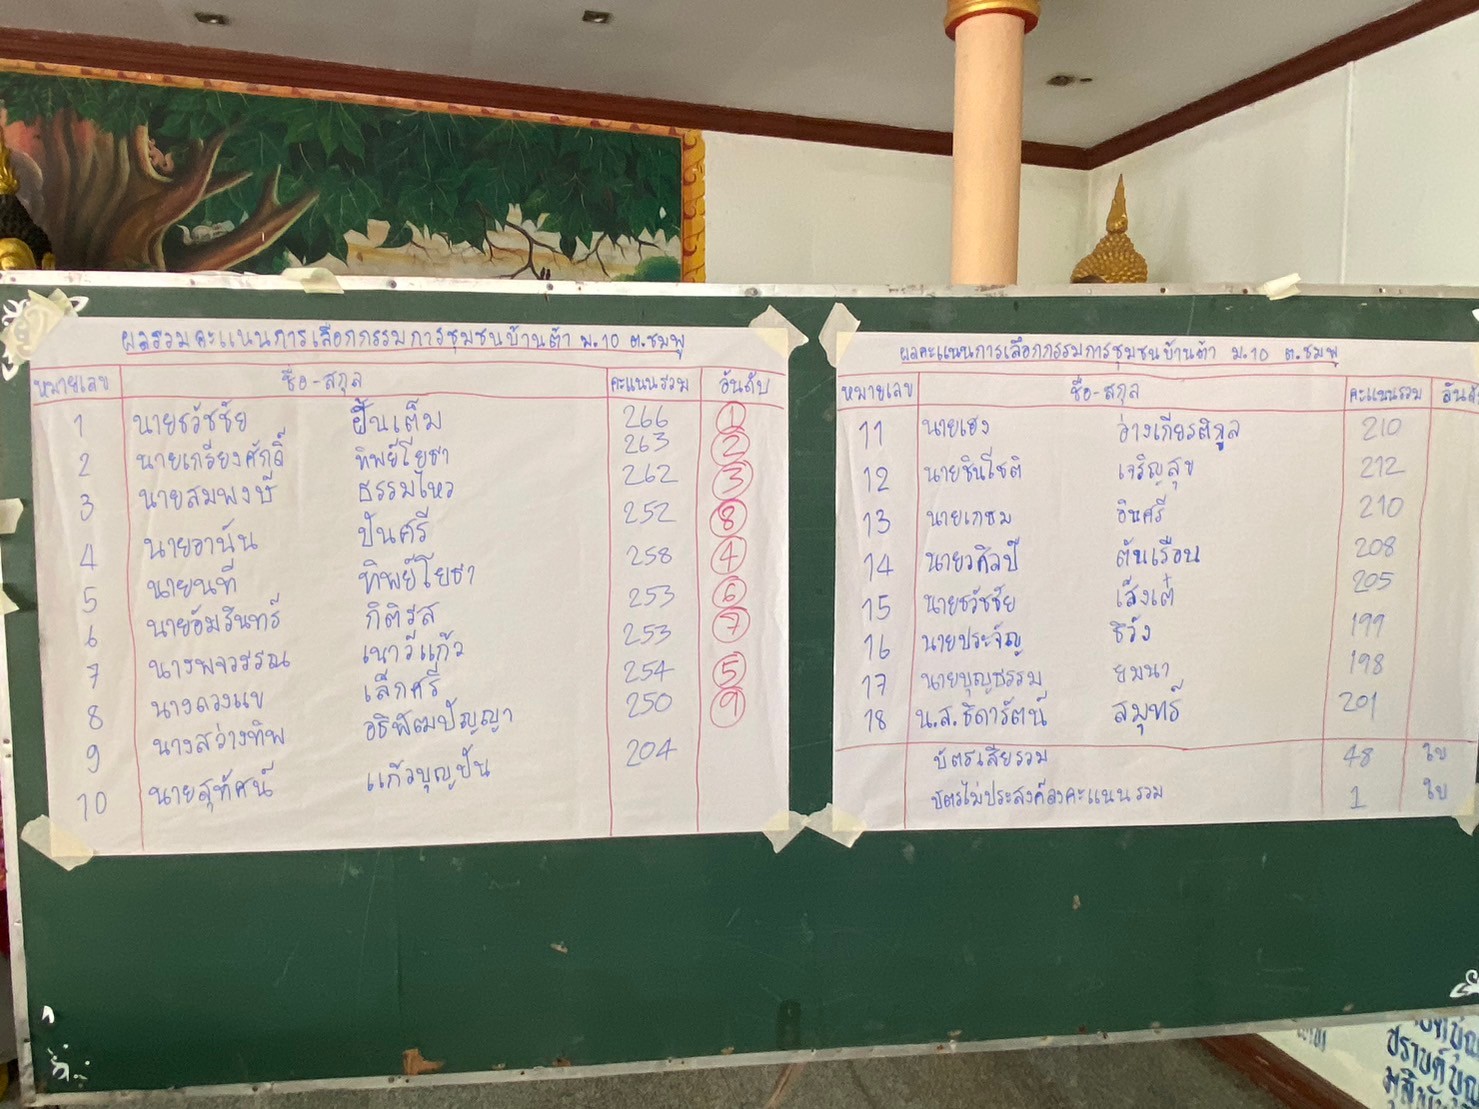 ผลรวมคะแนนการเลือกกรรมการชุมชนบ้านต้า ม.10 ต.ชมพู
หมายเลข ชื่อ-สกุล คะแนนรวม อันดับ
1 นายธวัชชัย ฝั้นเต็ม 266 1
2 นายเกรียงศักดิ์ ทิพย์โยธา 263 2
3 นายสมพงษ์ ธรรมไหว 262 3
4 นายอานันปันศรี 252 8
5 นายนที ทิพย์โยธา 258 4
6 นายอัมรินทร์ กิติรส 253 6
7 นางพจวรรณ เนาวีแก้ว 253 7
8 นางดวงแข เล็กศรี 254 5
9 นางสว่างทิพ อธิพัฒปัญญา 250 9
10 นายสุทัศน์ แก้วบุญปัน 204
ผลคะแนนการเลือกกรรมการชุมชนบ้านต้า ม.10 ต.ชมพู
หมายเลข ชื่อ-สกุล คะแนนรวม
11 นายเฮง อ่างเกียรติกูล 210
12 นายชินโชติ เจริญสุข 212
13 นายเกษม อินศรี 210
14 นายวศิลป์ ต้นเรือน 208
15 นายธวัชชัย เส็งเต๋ 205
16 นายประจัญ ธิวัง 199
17 นายบุญธรรม ยมนา 198
18 น.ส.ธิดารัตน์ สมุทร์ 201
บัตรเสียรวม 48 ใบ
บัตรไม่ประสงค์ลงคะแนนรวม 1 ใบ